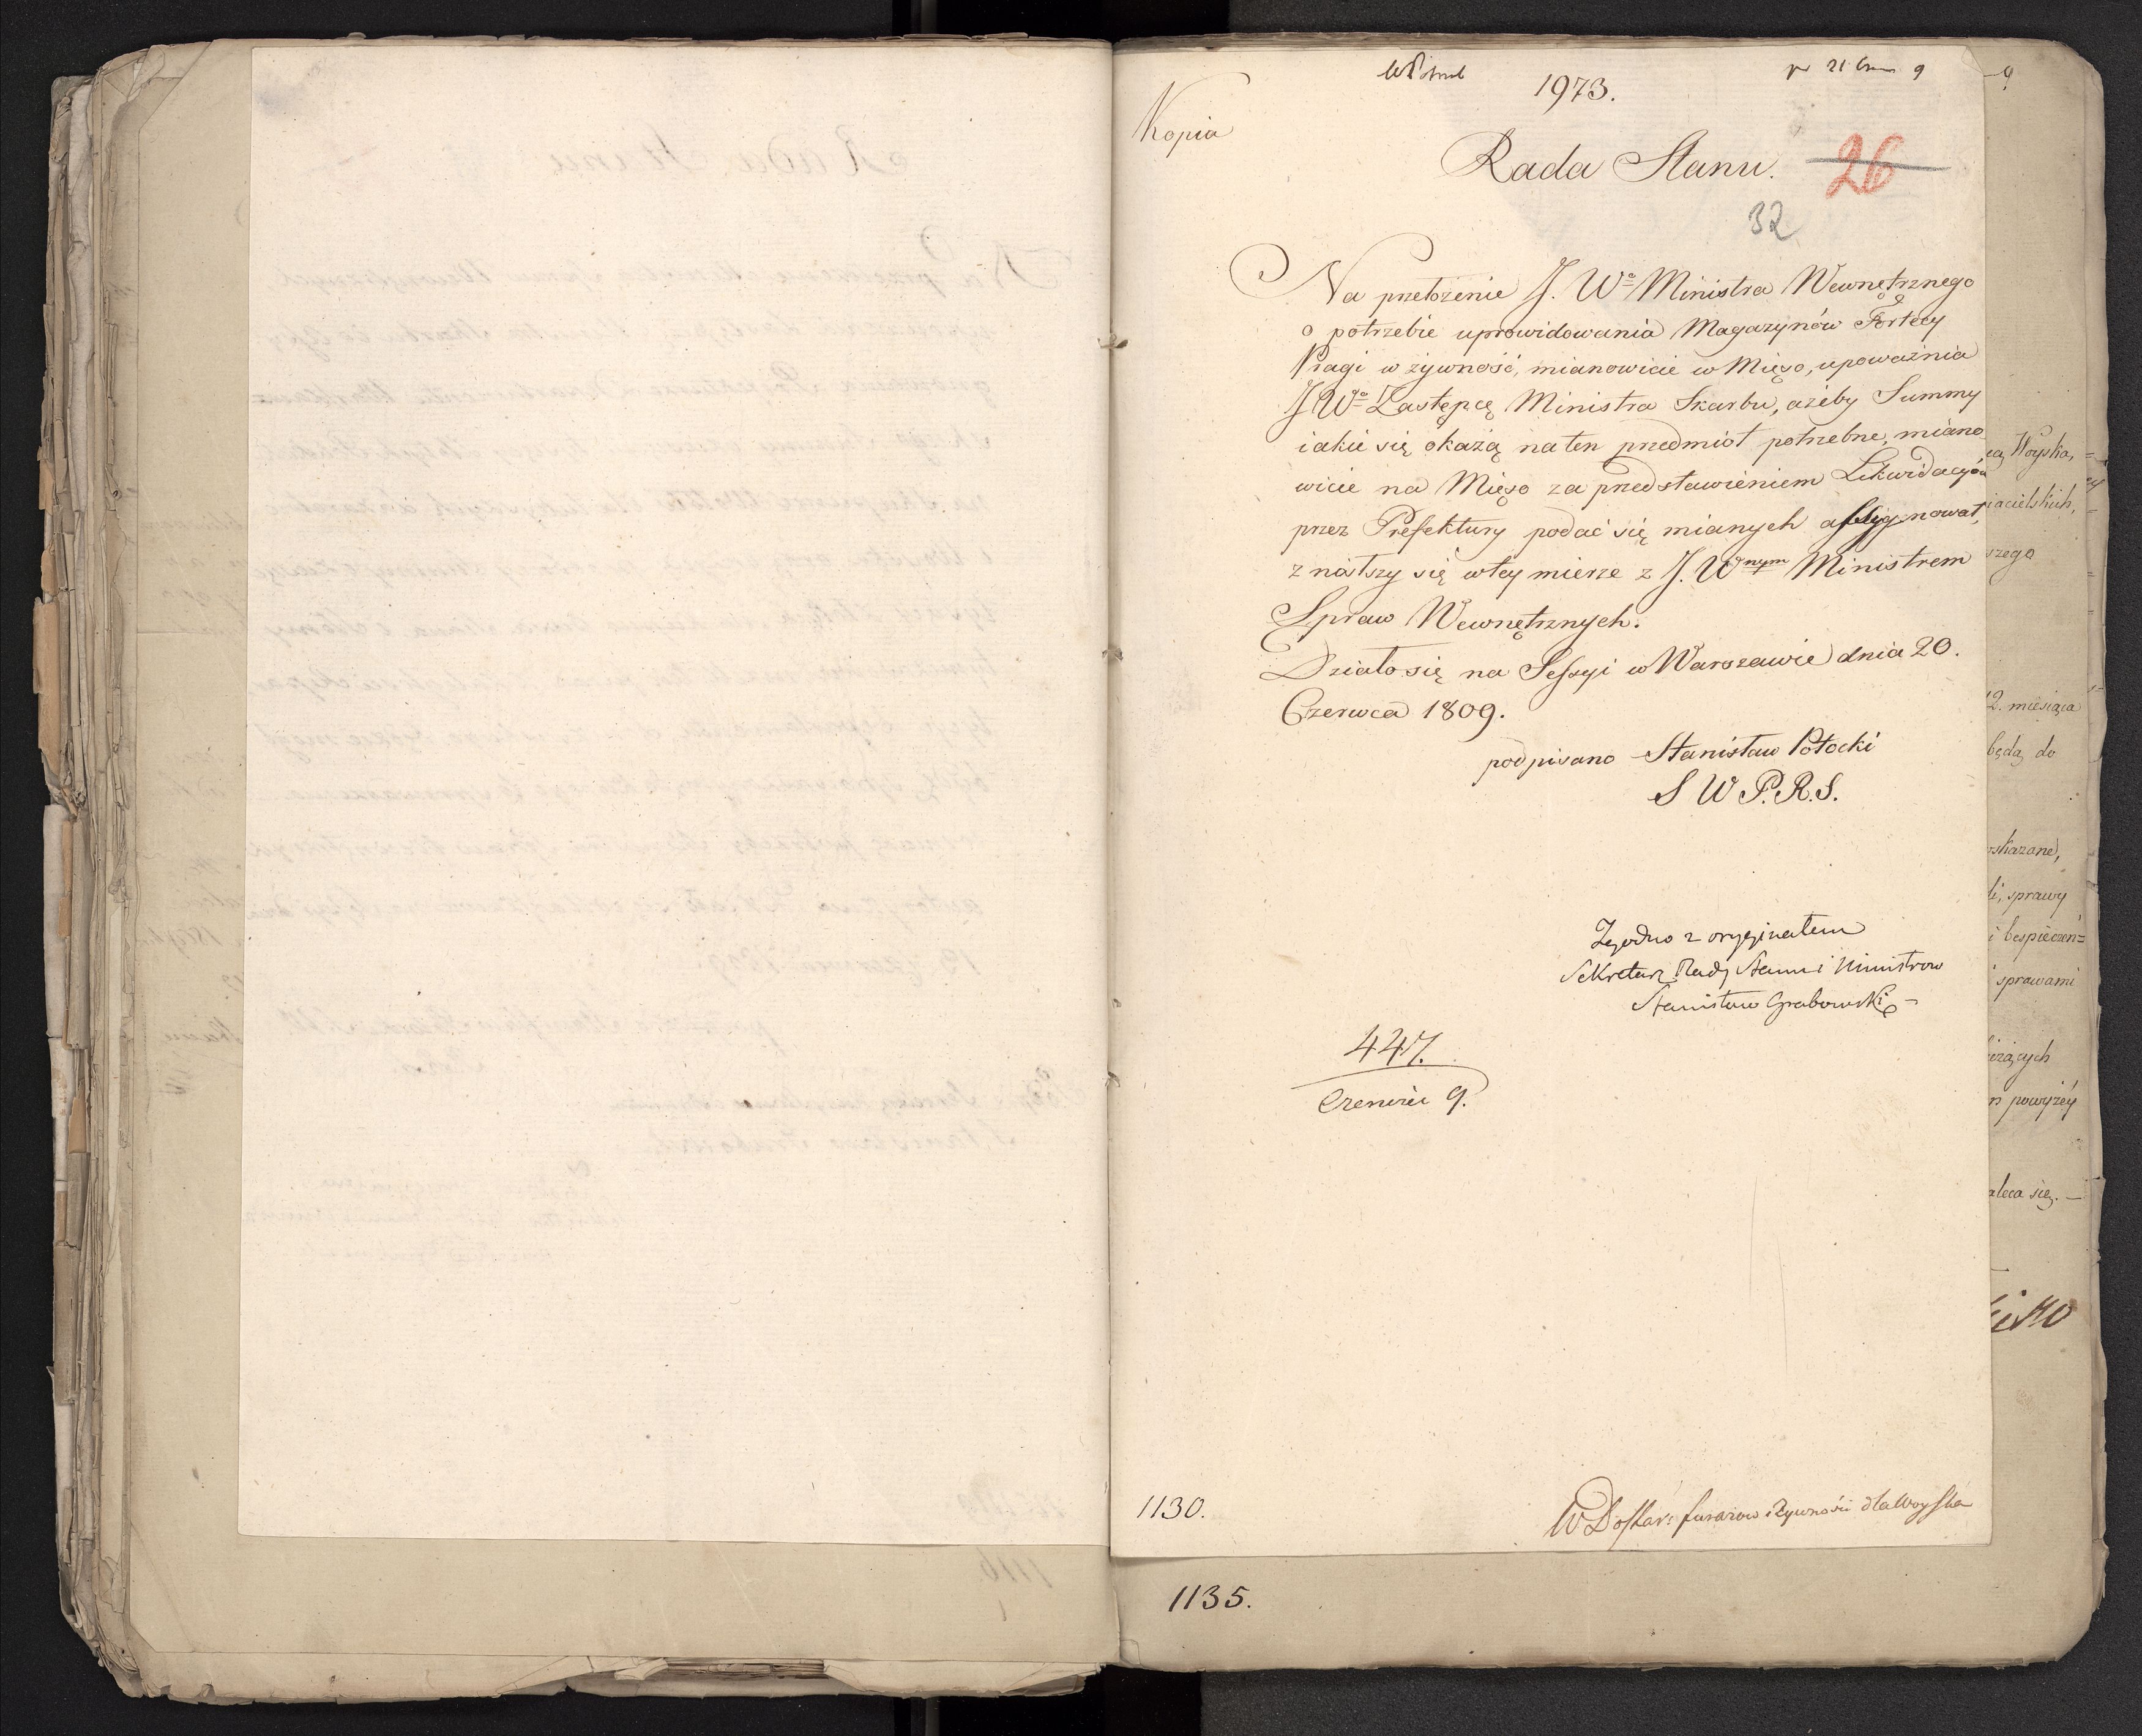 1973.
Kopia
Rada Stanu.
26
32
Na przełożenie J. Wo Ministra Wewnętrznego
o potrzebie uprowidowania Magazynów Fortecy
Pragi w żywność, mianowicie w Mięso, upoważnia
J Wo Zastępcę Ministra Skarbu, ażeby Summy
iakie się okażą na ten przedmiot potrzebne, miano
wicie na Mięso za przedstawieniem Likwidacyów
przez Prefektury podać się mianych assygnował,
zniósłszy się w tey mierze z J. Wnym Ministrem
Spraw Wewnętrznych.
Działo się na Sessyi w Warszawie dnia 20.
Czerwca 1809.
podpisano Stanisław Potocki
S W P. R. S.
Zgodno z oryginałem
Sekretarz Rady Stanu i Ministrow
Stanisław Grabowski
447.
Czerwiec 9.
1130.
W Dostar: furazow i Zywnosci dla Woyska
1135.
Woyska,
iacielskich,
szego
2. miesiąca
będą do
skazane,
li, sprawy
i bespieczeń=
sprawami
powyżéy
aleca się. —